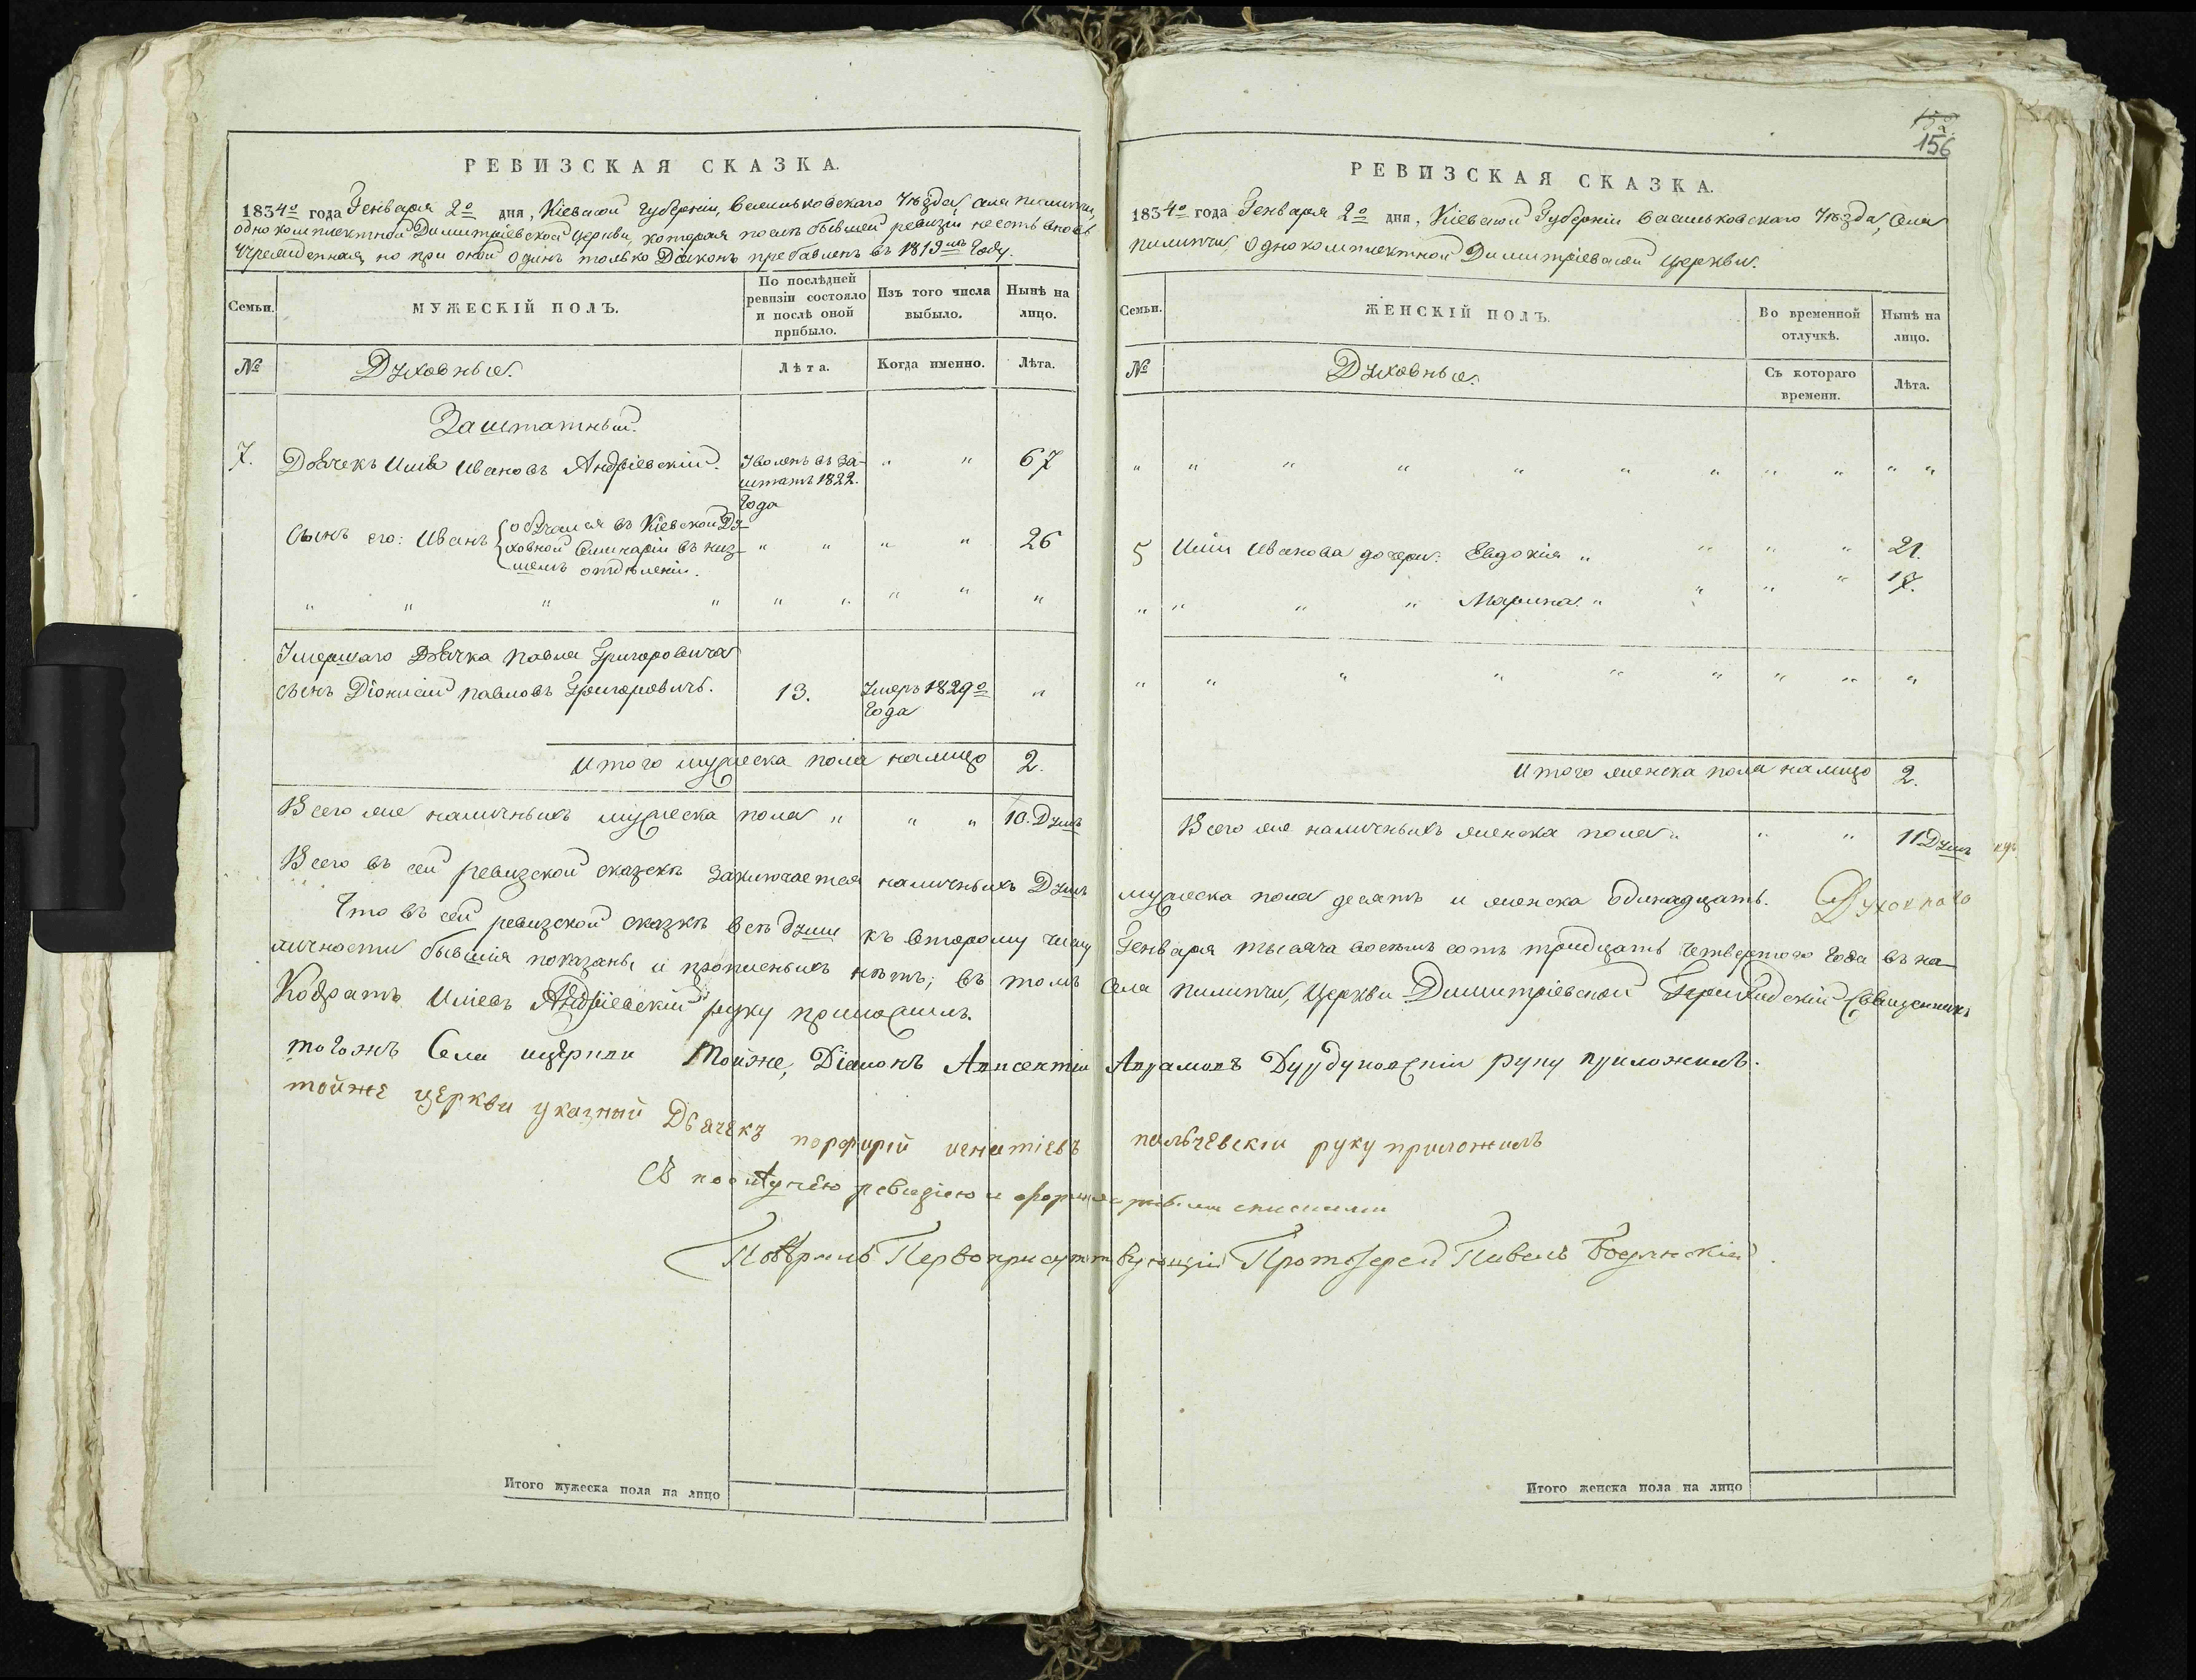 РЕВИЗСКАЯ СКАЗКА.
1834го года Генваря 2го дня, Кіевской Губерніи, Васильковскаго Уѣзда села Пилипчи,
однокомплектной Димитріевской Церкви, которая послѣ бывшей ревизіи не есть вновь
Учрежденная, но при оной Одинъ только Діаконъ прибавленъ въ 1819мъ Году.
Семьи.
МУЖЕСКІЙ ПОЛЪ.
По послѣдней ревизіи состояло и послѣ оной прибыло.
Изъ того числа выбыло.
Нынѣ на лицо.
№
Духовные.
Лѣта.
Когда именно.
Лѣта.
Заштатный.
7. Дьячекъ Илія Ивановъ Андріевскій. Уволенъ въ за- " " 67
штатъ 1822.
Года
Сынъ его: Иванъ обучался въ Кіевской Ду-
ховной Семинаріи въ низ- " " " " 26
шемъ отдѣленіи.
" " " " " " " " "
Умершаго Дьячка Павла Григоровича
сынъ Діонисій Павловъ Григоровичъ. 13. Умеръ 1829го "
Года
Итого мужеска пола налицо 2.
Всего же наличныхъ мужеска пола " " " 10. Душъ
РЕВИЗСКАЯ СКАЗКА.
156
1834го года Генваря 2го дня, Кіевской Губерніи Васильковскаго Уѣзда, Села
Пилипчи, Однокомплектной Димитріевской Церкви.
Семьи.
ЖЕНСКІЙ ПОЛЪ.
Во временной отлучкѣ.
Нынѣ на лицо.
№
Духовные.
Съ котораго времени.
Лѣта.
" " " " " " " " " " "
5 Иліи Иванова дочери: Евдокія " " " " 21.
" " " " Марина. " " " " 17.
" " " " " " " " "
Итого женска пола налицо 2.
Всего же наличныхъ женска пола " " " 11 Душъ
Всего въ сей ревизской сказкѣ заключается наличныхъ Душъ мужеска пола десять и женска одинадцать.
Что въ сей ревизской сказкѣ всѣ души къ второму числу Генваря тысяча восемь сотъ тридцать четвертого Года въ на-
личности бывшія показаны и прописныхъ нѣтъ; въ томъ Села Пилипчи, Церкви Димитріевской Священникъ
Кодратъ Иліевъ Андріевскій руку приложилъ.
тогожъ Села церкви Тойже, Діаконъ Авксентій Аврамовъ руку приложилъ.
тойже церкви указный Дьячекъ порфирій игнатіевъ пальчевскій руку приложилъ
Съ ревизіею и списками
Повѣрилъ Первоприсутствующій Протоіерей Павелъ
Итого мужеска пола на лицо
Итого женска пола на лицо